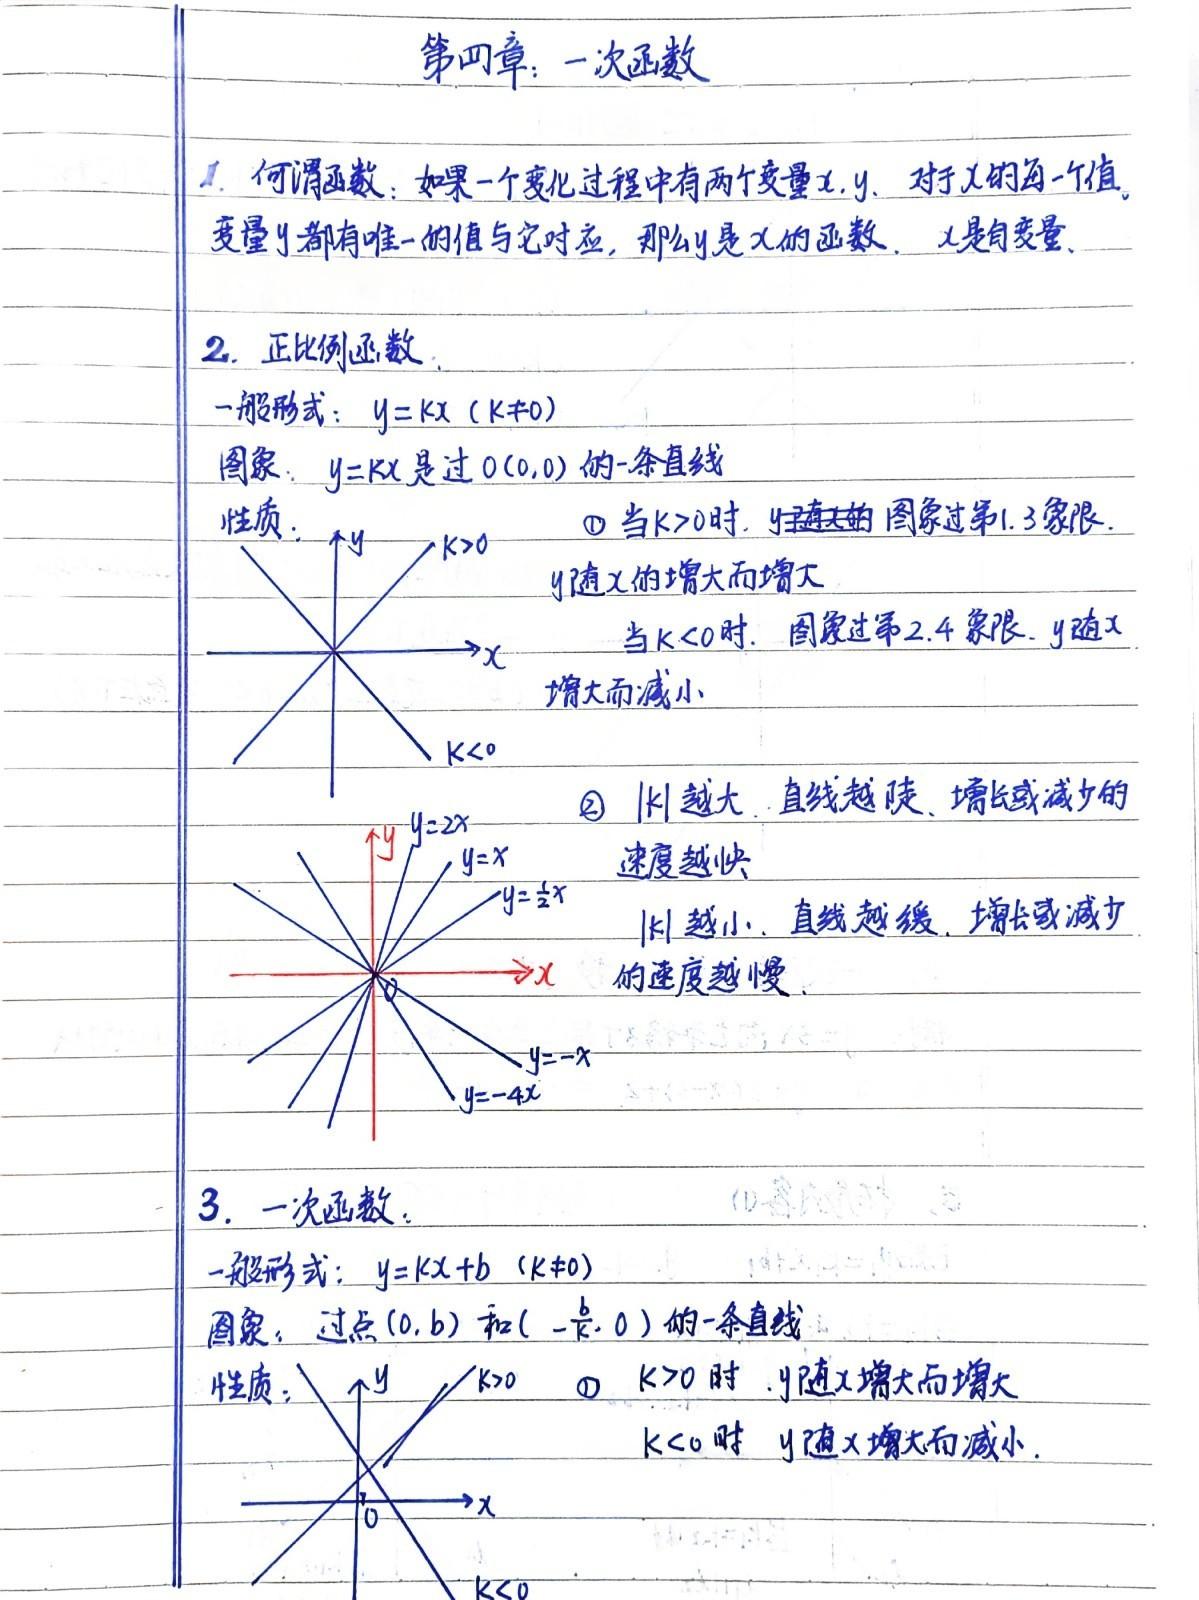 第四章：一次函数
1. 何谓函数：如果一个变化过程中有两个变量x.y、对于x的每一个值。
变量y都有唯一的值与它对应，那么y是x的函数．x是自变量．
2. 正比例函数．
一般形式：y=kx (k≠0)
图象：y=kx是过O(0,0)的一条直线
性质：
y
k>0
x
k<0
① 当k>0时．y随x的 图象过第1.3象限．
y随x的增大而增大
当k<0时．图象过第2.4象限．y随x
增大而减小
y
y=2x
y=x
y=½x
x
O
y=-x
y=-4x
② |k|越大．直线越陡、增长或减少的
速度越快
|k|越小．直线越缓．增长或减少
的速度越慢．
3. 一次函数：
一般形式：y=kx+b (k≠0)
图象：过点(0,b)和(-b/k,0)的一条直线
性质：
y
k>0
O
x
k<0
① k>0时．y随x增大而增大
k<0时 y随x增大而减小．